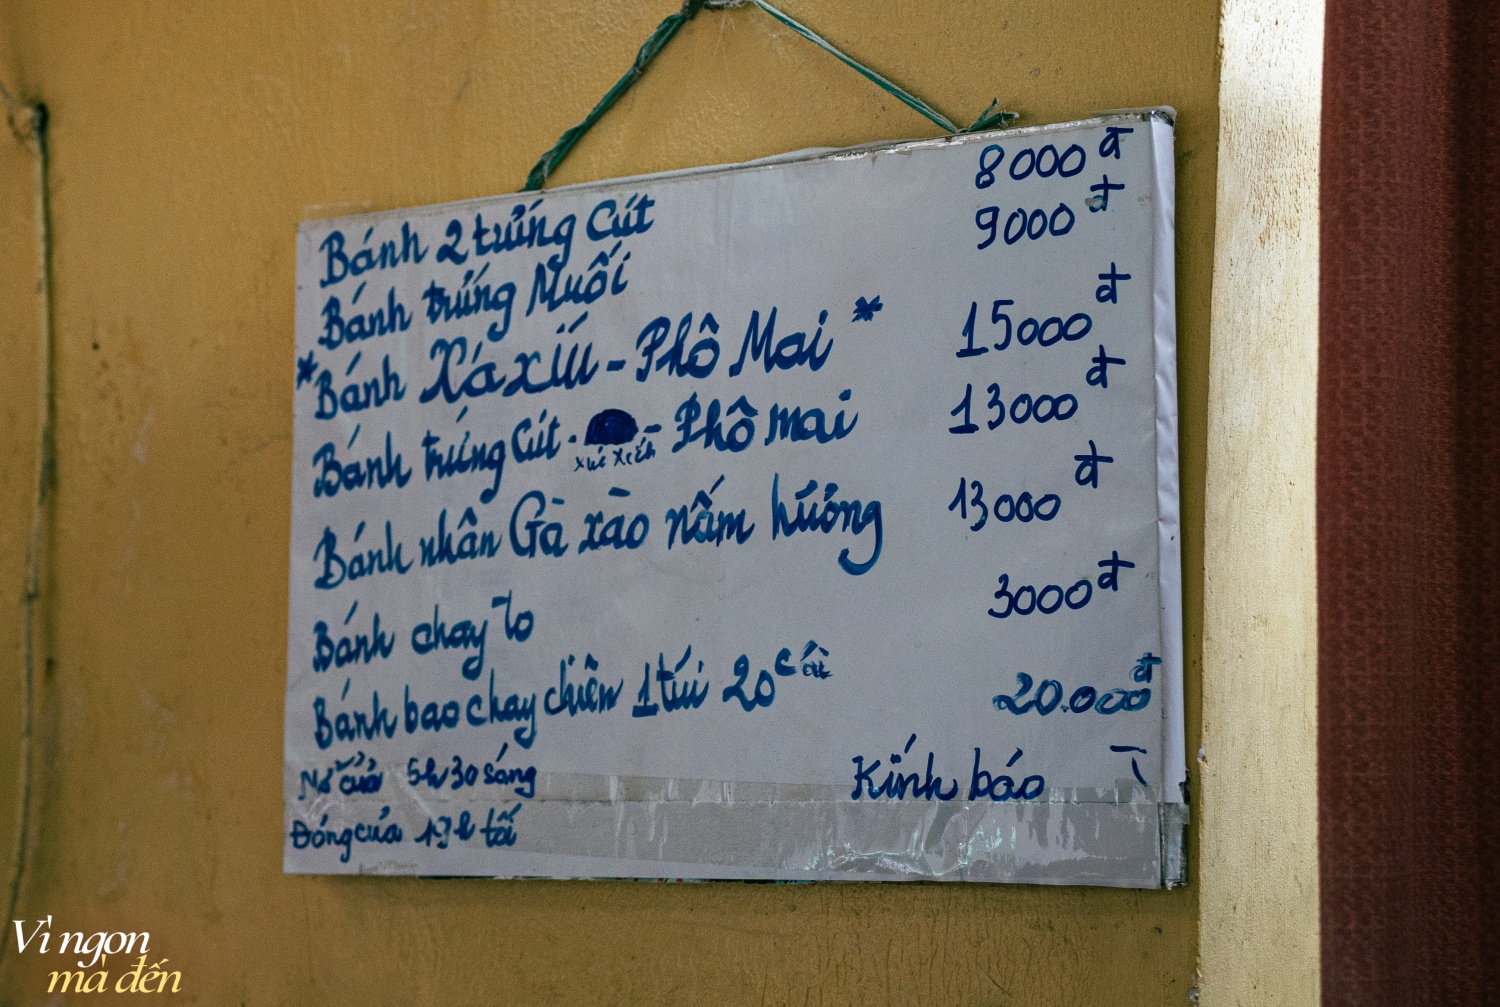 Bánh 2 trứng Cút 8000đ
Bánh trứng Muối 9000đ
* Bánh Xá xíu - Phô Mai * 15000đ
Bánh trứng Cút - xúc xích - Phô mai 13000đ
Bánh nhân Gà xào nấm hương 13000đ
Bánh chay to 3000đ
Bánh bao chay chiên 1 túi 20 cái 20.000đ
Mở cửa 5h30 sáng
Kính báo
Đóng cửa tối
Vì ngon
mà đến